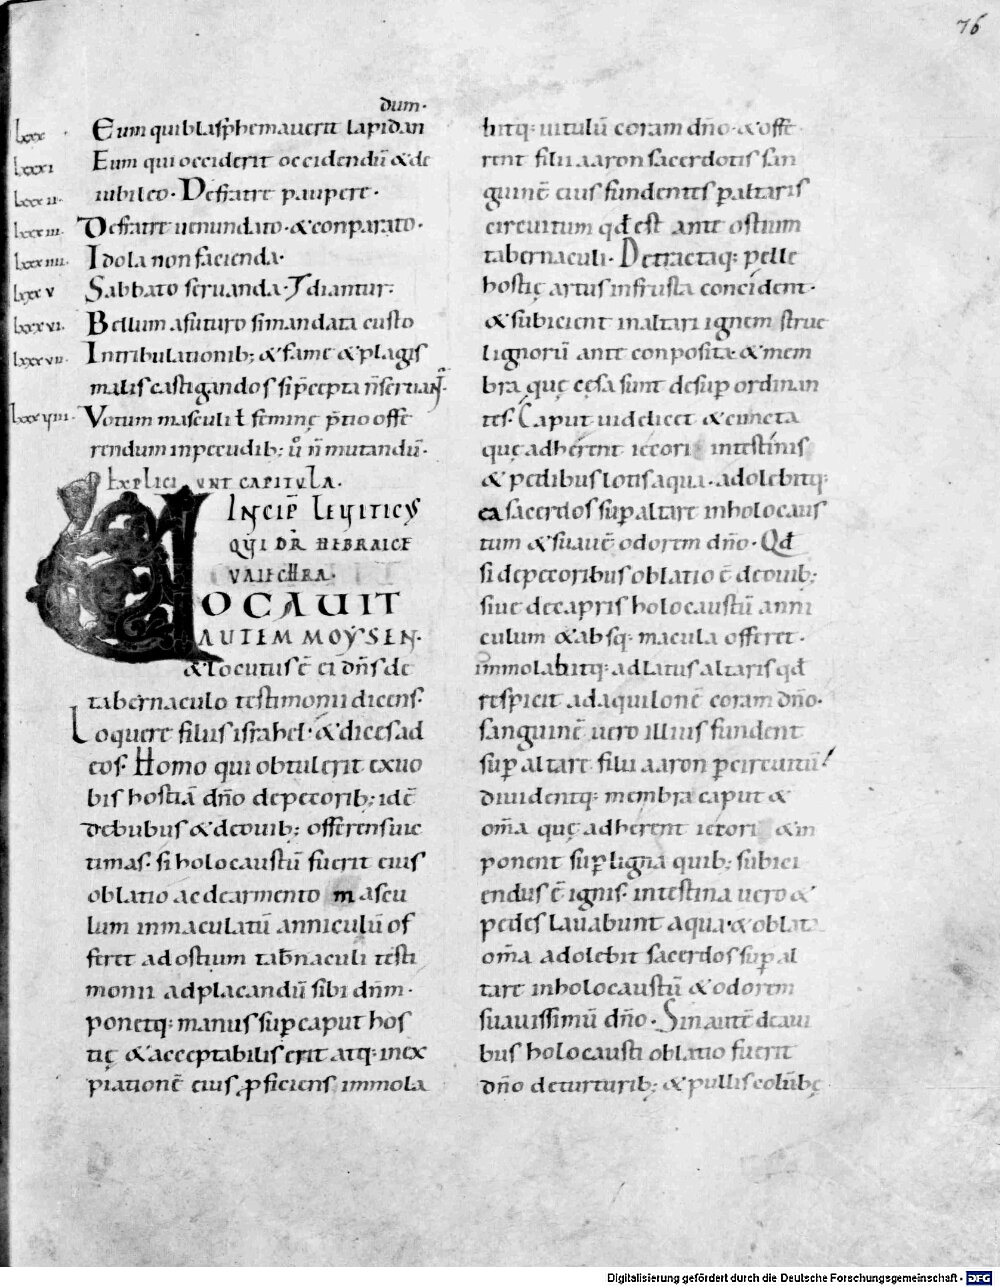 76
dum·
lxxx Eum qui blasphemauerit lapidan
lxxxi Eum qui occiderit occidendū & de
lxxxii iubileo· De fratre paupere·
lxxxiii· De fratre uenundato·& conparato·
lxxxiiii· Idola non facienda·
lxxxv Sabbato seruanda·
lxxxvi· Bellum a futuro si mandata custo
lxxxvii· In tribulationib; & fame & plagis
malis castigandos si p̄cepta n̄ seruant
lxxxviii· Votum masculi ł feminę p̄tio offe
rendum in pecudib; ū n̄ mutandū·
Explici unt capitula·
Incip̄ Leuiticus
qui dr̄ hebraice
vaiechra·
UOCAUIT
AUTEM MOYSEN·
& locutus ē ei dn̄s de
tabernaculo testimonii dicens·
Loquere filiis israhel· & dices ad
eos· Homo qui obtulerit ex uo
bis hostiā dn̄o de pecorib; idē
de bubus & de ouib; offerens uic
timas· si holocaustū fuerit eius
oblatio ac de armento mascu
lum inmaculatū anniculū of
feret ad ostium tab̄naculi testi
monii ad placandū sibi dn̄m·
ponetq: manus sup caput hos
tię & acceptabilis erit atq: in ex
piationē eius p̱ficiens immola
bitq: uitulū coram dn̄o·& offe
rent filii aaron sacerdotis san
guinē eius fundentes p̱ altaris
circuitum qd̄ est ante ostium
tabernaculi· Detractaq: pelle
hostię artus in frusta concident·
& subicient in altari ignem strue
lignorū ante conposita·& mem
bra quę cęsa sunt desup ordinan
tes· Caput uidelicet & cuncta
quę adherent iecori· intestinis
& pedibus lotis aqua· adolebitq:
ea sacerdos sup altare in holocaus
tum & suauē odorem dn̄o· Qd̄
si de pecoribus oblatio ē de ouib;
siue de capris holocaustū anni
culum & absq: macula offeret·
immolabitq: ad latus altaris qd̄
respicit ad aquilonē coram dn̄o·
sanguinē uero illius fundent
sup altare filii aaron p̱ circuitū·
diuidentq: membra caput &
om̄a quę adherent iecori & in
ponent sup ligna quib; subici
endus ē ignis· intestina uero &
pedes lauabunt aqua·& oblata
om̄a adolebit sacerdos sup al
tare in holocaustū & odorem
suauissimū dn̄o· Sin autē de aui
bus holocausti oblatio fuerit
dn̄o de turturib; & pullis colūbę
Digitalisierung gefördert durch die Deutsche Forschungsgemeinschaft - DFG